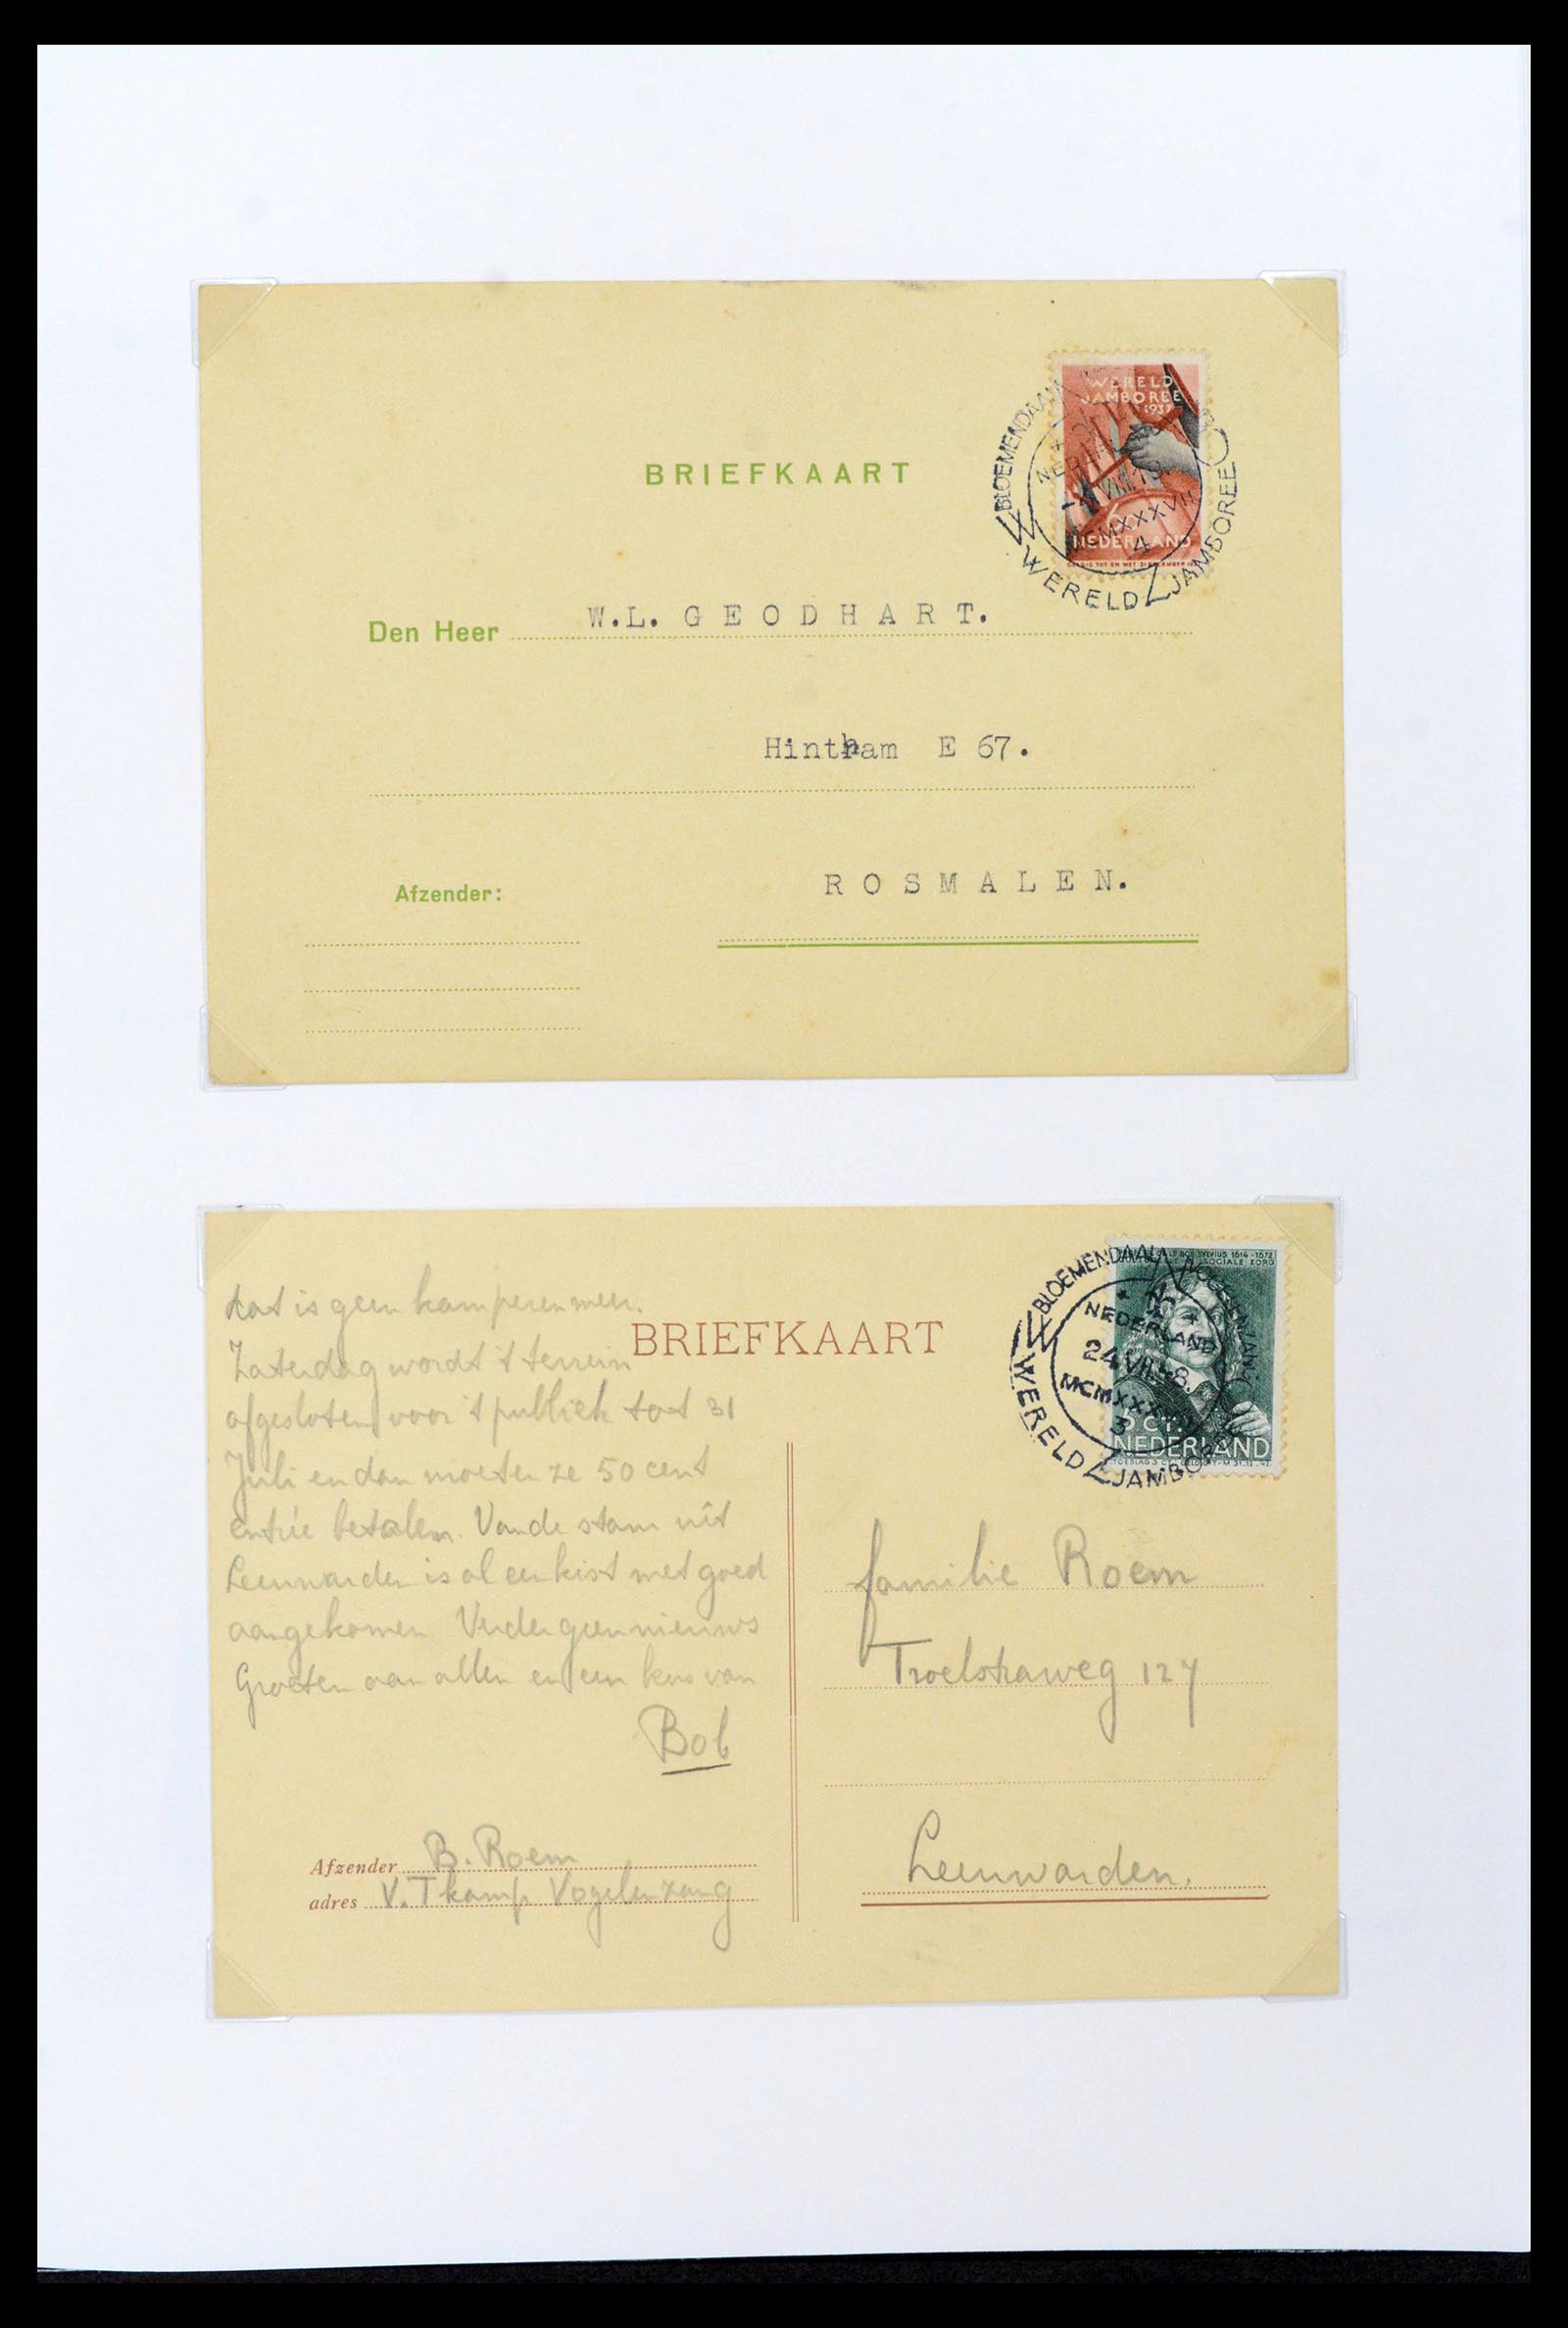 WERELD
JAMBOREE
1937
6
NEDERLAND
BLOEMENDAAL
NEDERLAND
MCMXXXVII
4
WERELD JAMBOREE
BRIEFKAART
Den Heer W.L. GEODHART.
Hintham E 67.
ROSMALEN.
Afzender:
SYLVIUS 1614-1672
SOCIALE ZORG
NEDERLAND
BLOEMENDAAL VOGELENZANG
NEDERLAND
24 VII
3
WERELD JAMBOREE
BRIEFKAART
dat is geen kamperen meer.
Zaterdag wordt 't terrein
afgesloten voor 't publiek tot 31
Juli en dan moeten ze 50 cent
entrée betalen. Van de stam uit
Leeuwarden is al een kist met goed
aangekomen. Verder geen nieuws
Groeten aan allen en een kus van
Bob
familie Roem
Troelstraweg 127
Leeuwarden.
Afzender B. Roem
adres V.T kamp Vogelenzang